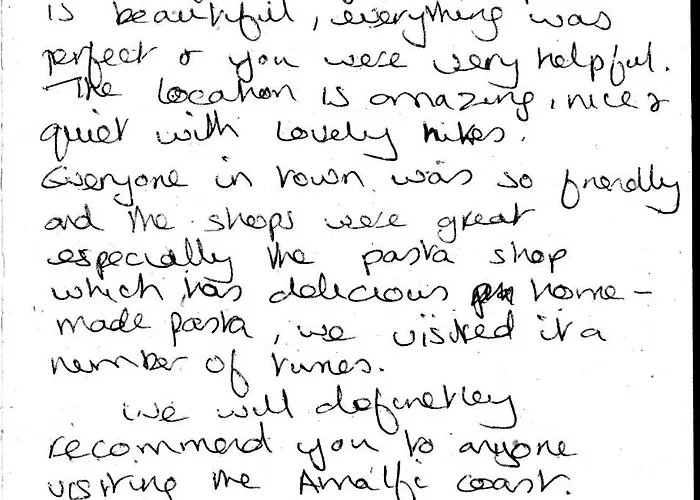 is beautiful, everything was
perfect & you were very helpful.
The location is amazing, nice &
quiet with lovely hikes.
Everyone in town was so friendly
and the shops were great
especially the pasta shop
which has delicious home-
made pasta, we visited it a
number of times.
We will definetley
recommend you to anyone
visiting the Amalfi coast.